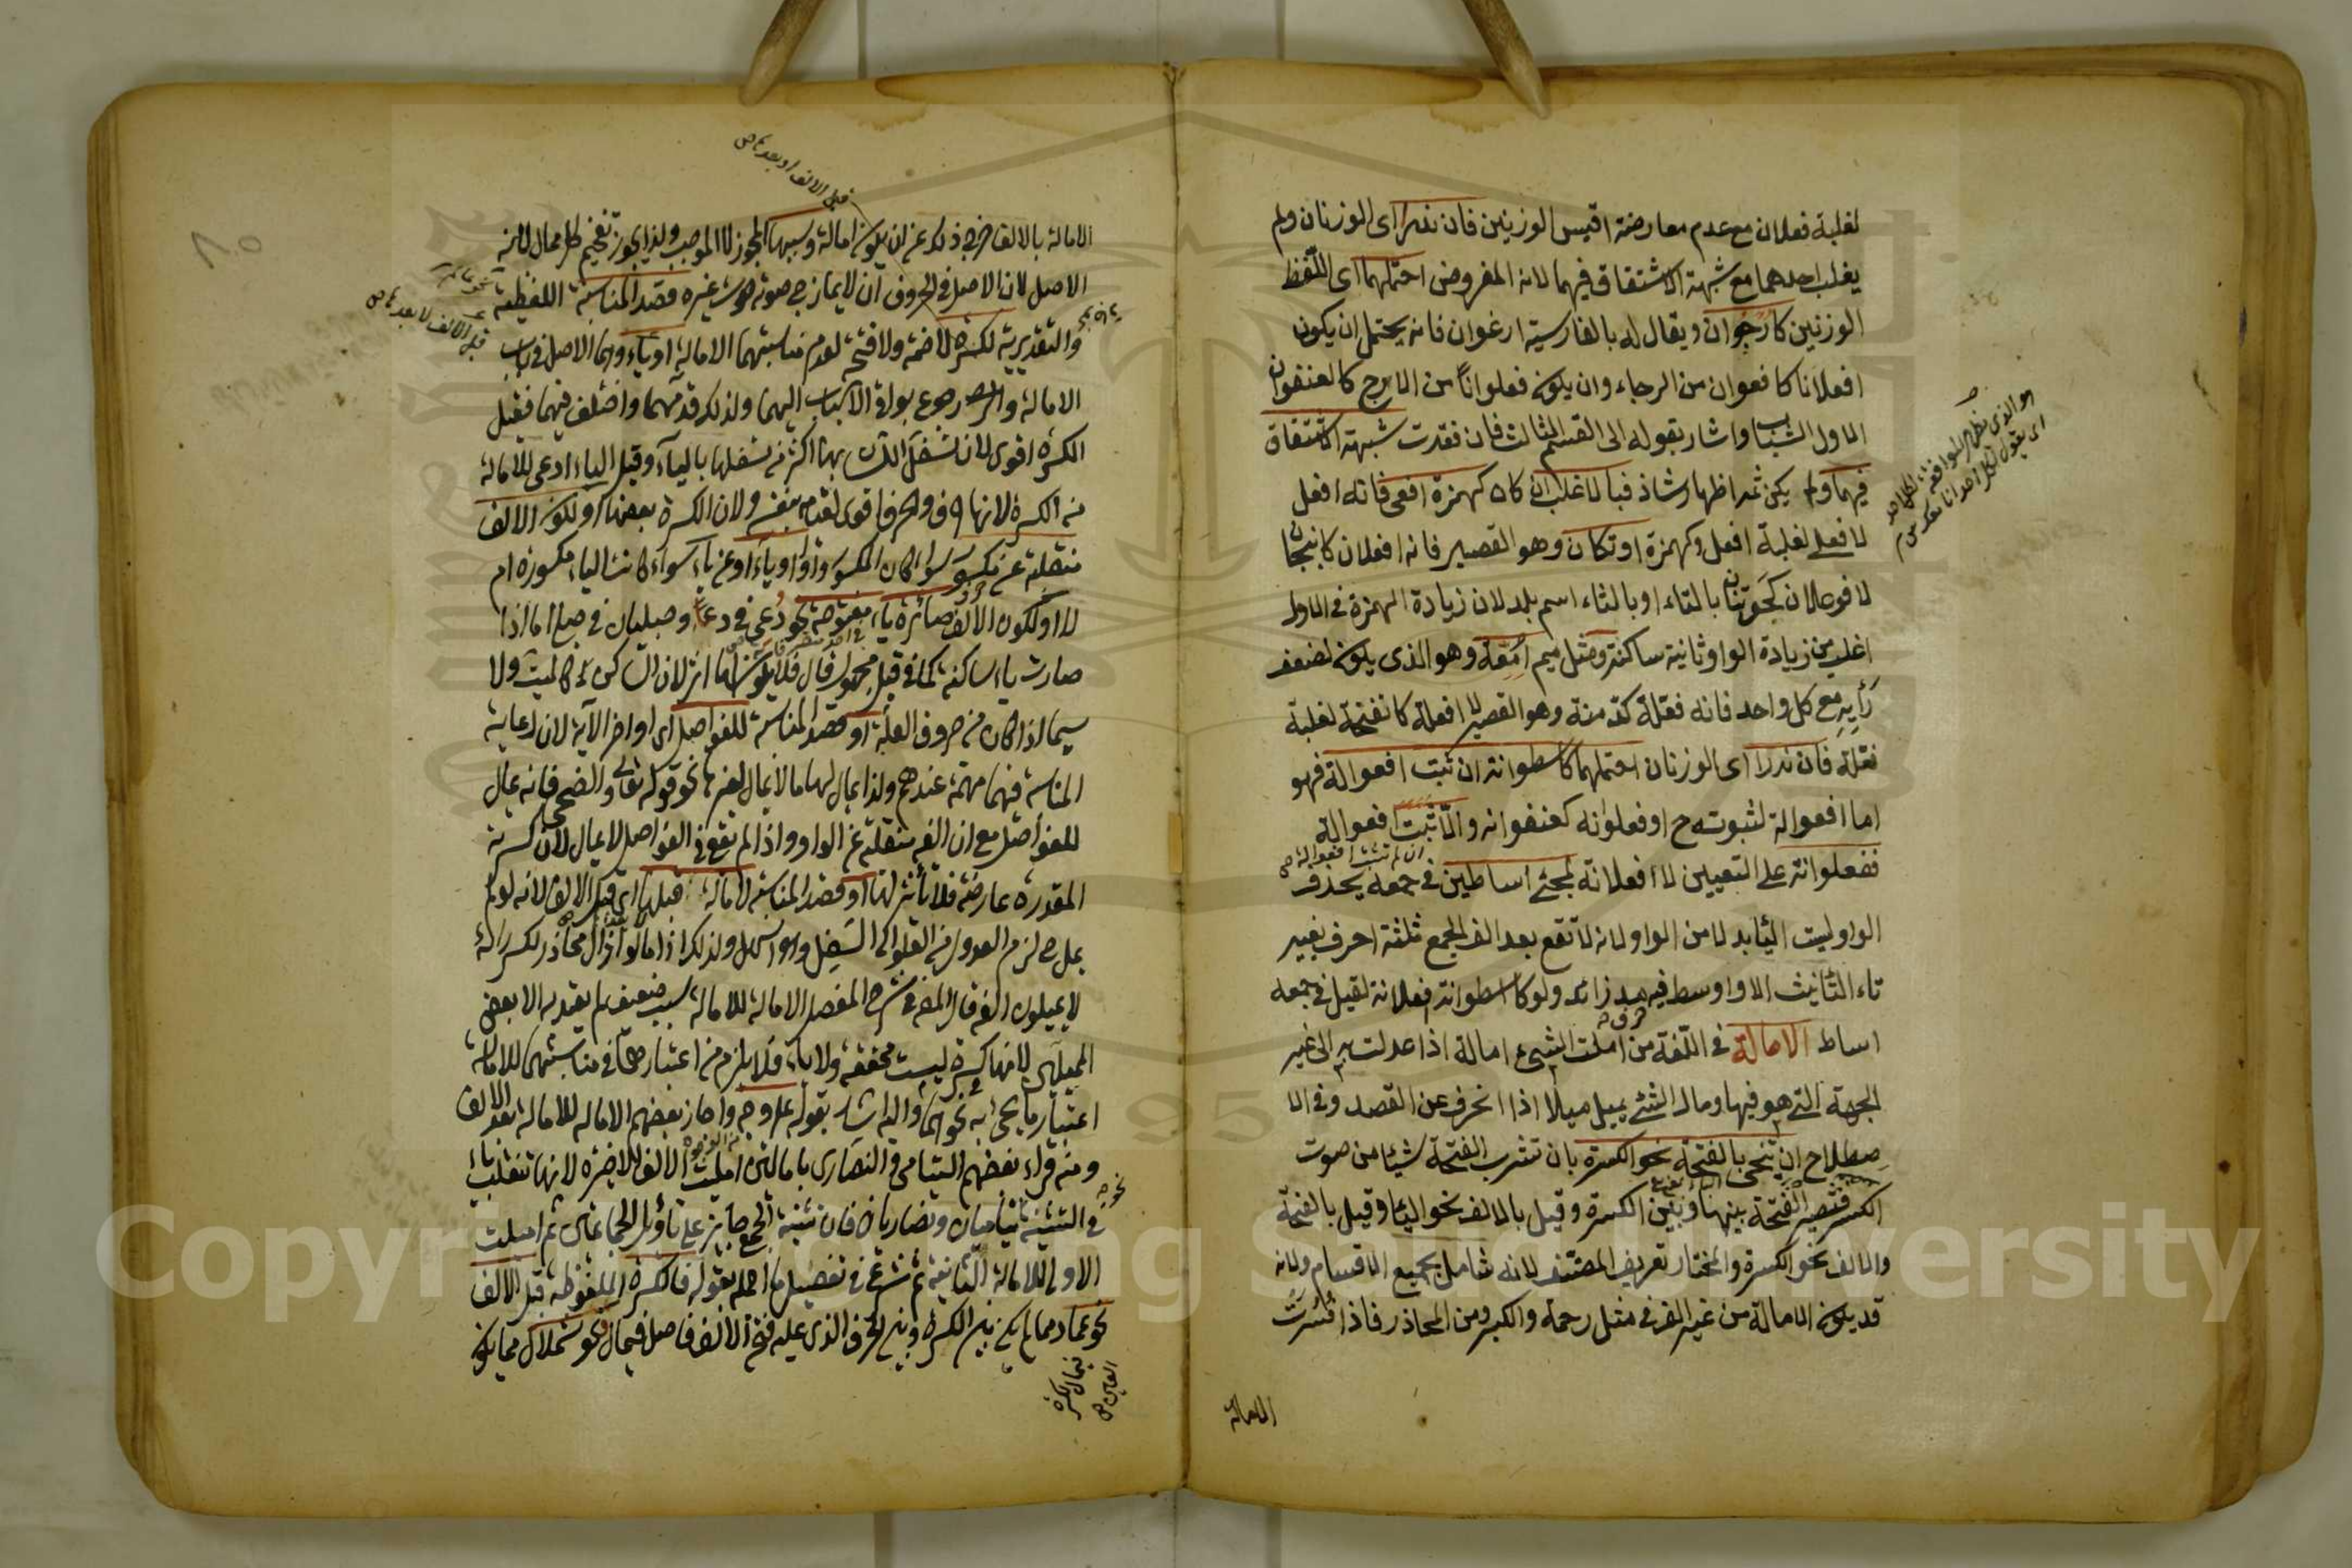 لغلبة فعلان مع عدم معارضة اقيس الوزنين فان ندرا اى الوزنان ولم
يغلب احدهما مع شبهة الاشتقاق فيهما لانه المفروض احتملهما اى اللفظ
الوزنين كارجوان ويقال له بالفارسية ارغوان فانه يحتمل ان يكون
افعلانا كافعوان من الرجاء وان يكون فعلوانا من الارج كالعنفوان
لاول الشباب واشار بقوله الى القسم الثالث فان فقدت شبهة الاشتقاق
فيهما ولم يكن ثمه اظهار شاذ فبالاغلب ان كان كهمزة افعى فانه افعل
لا فعلى لغلبة افعل وكهمزة اوتكان وهو القصير فانه افعلان كانبجان
لا فوعلان كحوتنان بالتاء او بالثاء اسم بلد لان زيادة الهمزة فى الاول
اغلب من زيادة الواو ثانية ساكنة ومثل ميم امعة وهو الذى يكون لضعف
رأيه مع كل واحد فانه فعلة كدمنة وهو القصير لا افعلة كانفحة لغلبة
فعلة فان ندرا اى الوزنان احتملهما كاسطوانة ان ثبت افعوالة فهو
اما افعوالة لثبوته ح او فعلوانه كعنفوانه والا ثبت افعوالة
ان لم تثبت افعوالة
ففعلوانة على التعيين لا افعلانة لمجئ اساطين فى جمعه بحذف
الواو ليست الياء بدلا من الواو لانه لا تقع بعد الف الجمع ثلثة احرف بغير
تاء التأنيث الا واوسط فيه مد زائد ولو كا اسطوانة افعلانة لقيل فى جمعه
اساط الامالة فى اللغة من املت الشئ امالة اذا عدلت به الى غير
الجهة التى هو فيها ومال الشئ يميل ميلا اذا انحرف عن القصد وفى الا
صطلاح ان ينحى بالفتحة نحو الكسرة بان تشرب الفتحة شيئا من صوت
الكسر فتصير الفتحة بينها وبين الكسرة وقيل بالالف نحو الياء وقيل بالفتحة
والالف نحو الكسرة والمختار تعريف المصنف لانه شامل بجميع الاقسام ولانه
قد يكون الامالة من غير الف فى مثل رحمة والكبر ومن المحاذر فاذا فسرت
الامالة
هو الذى يظهر الموافقة لكل احد
اى يقول لكل احد انا معك
٨٠
قبل الالف او بعدها
الامالة بالالف خرج ذلك عن ان يكون امالة وسببها المجوز لا الموجب ولذا يجوز تفخيم كل ممال لانه
الاصل لان الاصل فى الحروف ان لا يمازج صوته صوت غيره قصد المناسبة اللفظية
والتقديرية لكسرة لا ضمة ولا فتحة لعدم مناسبتهما الامالة او ياء وانما الاصل فى باب
الامالة والى رجوع بواقى الاسباب اليهما ولذلك قدمهما واختلف فيهما فقيل
الكسرة اقوى لان تسفل اللسان بها اكثر من تسفلها بالياء وقيل الياء ادعى للامالة
من الكسرة لانها حرف والحرف اقوى لقيامه بنفسه ولان الكسرة بعضها او لكون الالف
منقلبة عن مكسور سواء كان المكسور واوا او ياء او عن ياء سواء كانت الياء مكسورة ام
لا او لكون الالف صائرة ياء مفتوحة نحو دعى فى دعا وحبليان فى حبلى اما اذا
صارت ياء ساكنة كما فى قيل مجهول قال فلا يكون لها اثر لان الساكن كالميت ولا
سيما اذا كان من حروف العلة او قصد المناسبة للفواصل اى اواخر الآية لان رعاية
المناسبة فيها مهمة عندهم ولذا يمال لها ما لا يمال لغيرها نحو قوله تعالى والضحى فانه يمال
للفواصل مع ان الفه منقلبة عن الواو واذا لم تقع فى الفواصل لا يمال لان كسرته
المقدرة عارضة فلا تأثير لها او قصد المناسبة لامالة قبلها اى قبل الالف لانه لو لم
يمل ح لزم العدول من العلو الى التسفل وهو اسهل ولذلك اذا امالوا ذال محاذر لكسر الراء
لا يميلون الفه قال المص فى شرح المفصل الامالة للامالة سبب ضعيف لم يعتد به الا بعض
المميلين لانها كسرة ليست محققة ولا ياء فلا يلزم من اعتبارهما فى مناسبتهما للامالة
اعتبار ما يجئ به نحوهما واليه اشار بقوله على وجه واجاز بعضهم الامالة للامالة بعد الالف
ومنه قراءة بعضهم اليتامى والنصارى بامالتين املت الالف الاخيرة لانها تنقلب ياء
فى التثنية يتاميان ونصاريان فان تثنية الجمع جايز على تأويل الجماعتين ثم اميلت
الاولى للامالة الثانية ثم شرع فى تفصيل ما اجمله بقوله فالكسرة الملفوظة قبل الالف
نحو عماد مما لم يكن بين الكسرة وبين الحرف الذى عليه فتح الالف فاصل فيمال ونحو شملال مما يكون
Copyright © King Saud University